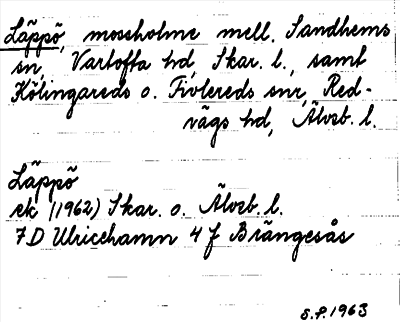 Läppö, mosseholme mell. Sandhems
sn, Vartofta hd, Skar. l., samt
Kölingareds o. Fivlereds snr, Red-
vägs hd, Älvsb. l.
Läppö
ek (1962) Skar. o. Älvsb. l.
7D Ulricehamn 4 f Brängesås
S.P. 1963